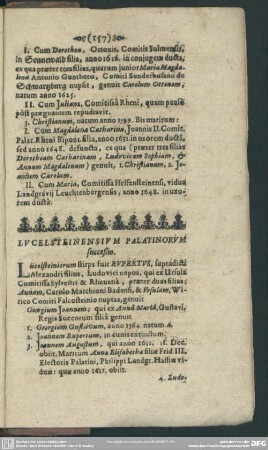 (157)
I. Cum Dorothea, Ottonis, Comitis Solmensis,
in Sonnewald filia, anno 1616. in conjugem ducta,
ex qua præter tres filias, quarum junior Maria Magdalena
Antonio Gunthero, Comiti Sunderhusano de
Schwartzburg nupsit, genuit Carolum Ottonem,
natum anno 1625.
II. Cum Juliana, Comitissâ Rheni, quam paulò
pòst prægnantem repudiavit.
1. Christianum, natum anno 1599. Bis maritum:
I. Cum Magdalena Catharina, Joannis II. Comit.
Palat. Rheni Bipont. filia, anno 1631. in uxorem ducta,
sed anno 1648. defuncta, ex qua (præter tres filias
Dorotheam Catharinam, Ludovicam Sophiam, &
Annam Magdalenam) genuit, 1. Christianum, 2. Joannem
Carolum.
II. Cum Maria, Comitissa Helfensteinensi, vidua
Landgravij Leuchtenbergensis, anno 1648. in uxorem
ducta.
LVCELSTEINENSIVM PALATINORVM
successio.
Lücelsteiniorum stirps fuit RVPERTVS, supradicti
Alexandri filius, Ludovici nepos, qui ex Ursula
Comitissa Sylvestri & Rhenana, præter duas filias:
Annam, Carolo Marchioni Badensi, & Ursulam, Wirico
Comiti Falcostenio nuptas, genuit
Georgium Joannem; qui ex Anna Mariâ, Gustavi,
Regis Suecorum filiâ genuit
1. Georgium Gustavum, anno 1564. natum.
2. Joannem Rupertum, in cunis exstinctum.
3. Joannem Augustum, qui anno 1611. 18. Dec.
obiit. Maritum Anna Elisabetha filia Frid. III.
Electoris Palatini, Philippi Landgr. Hassiæ vidua:
quæ anno 1611. obiit.
4. Ludo-